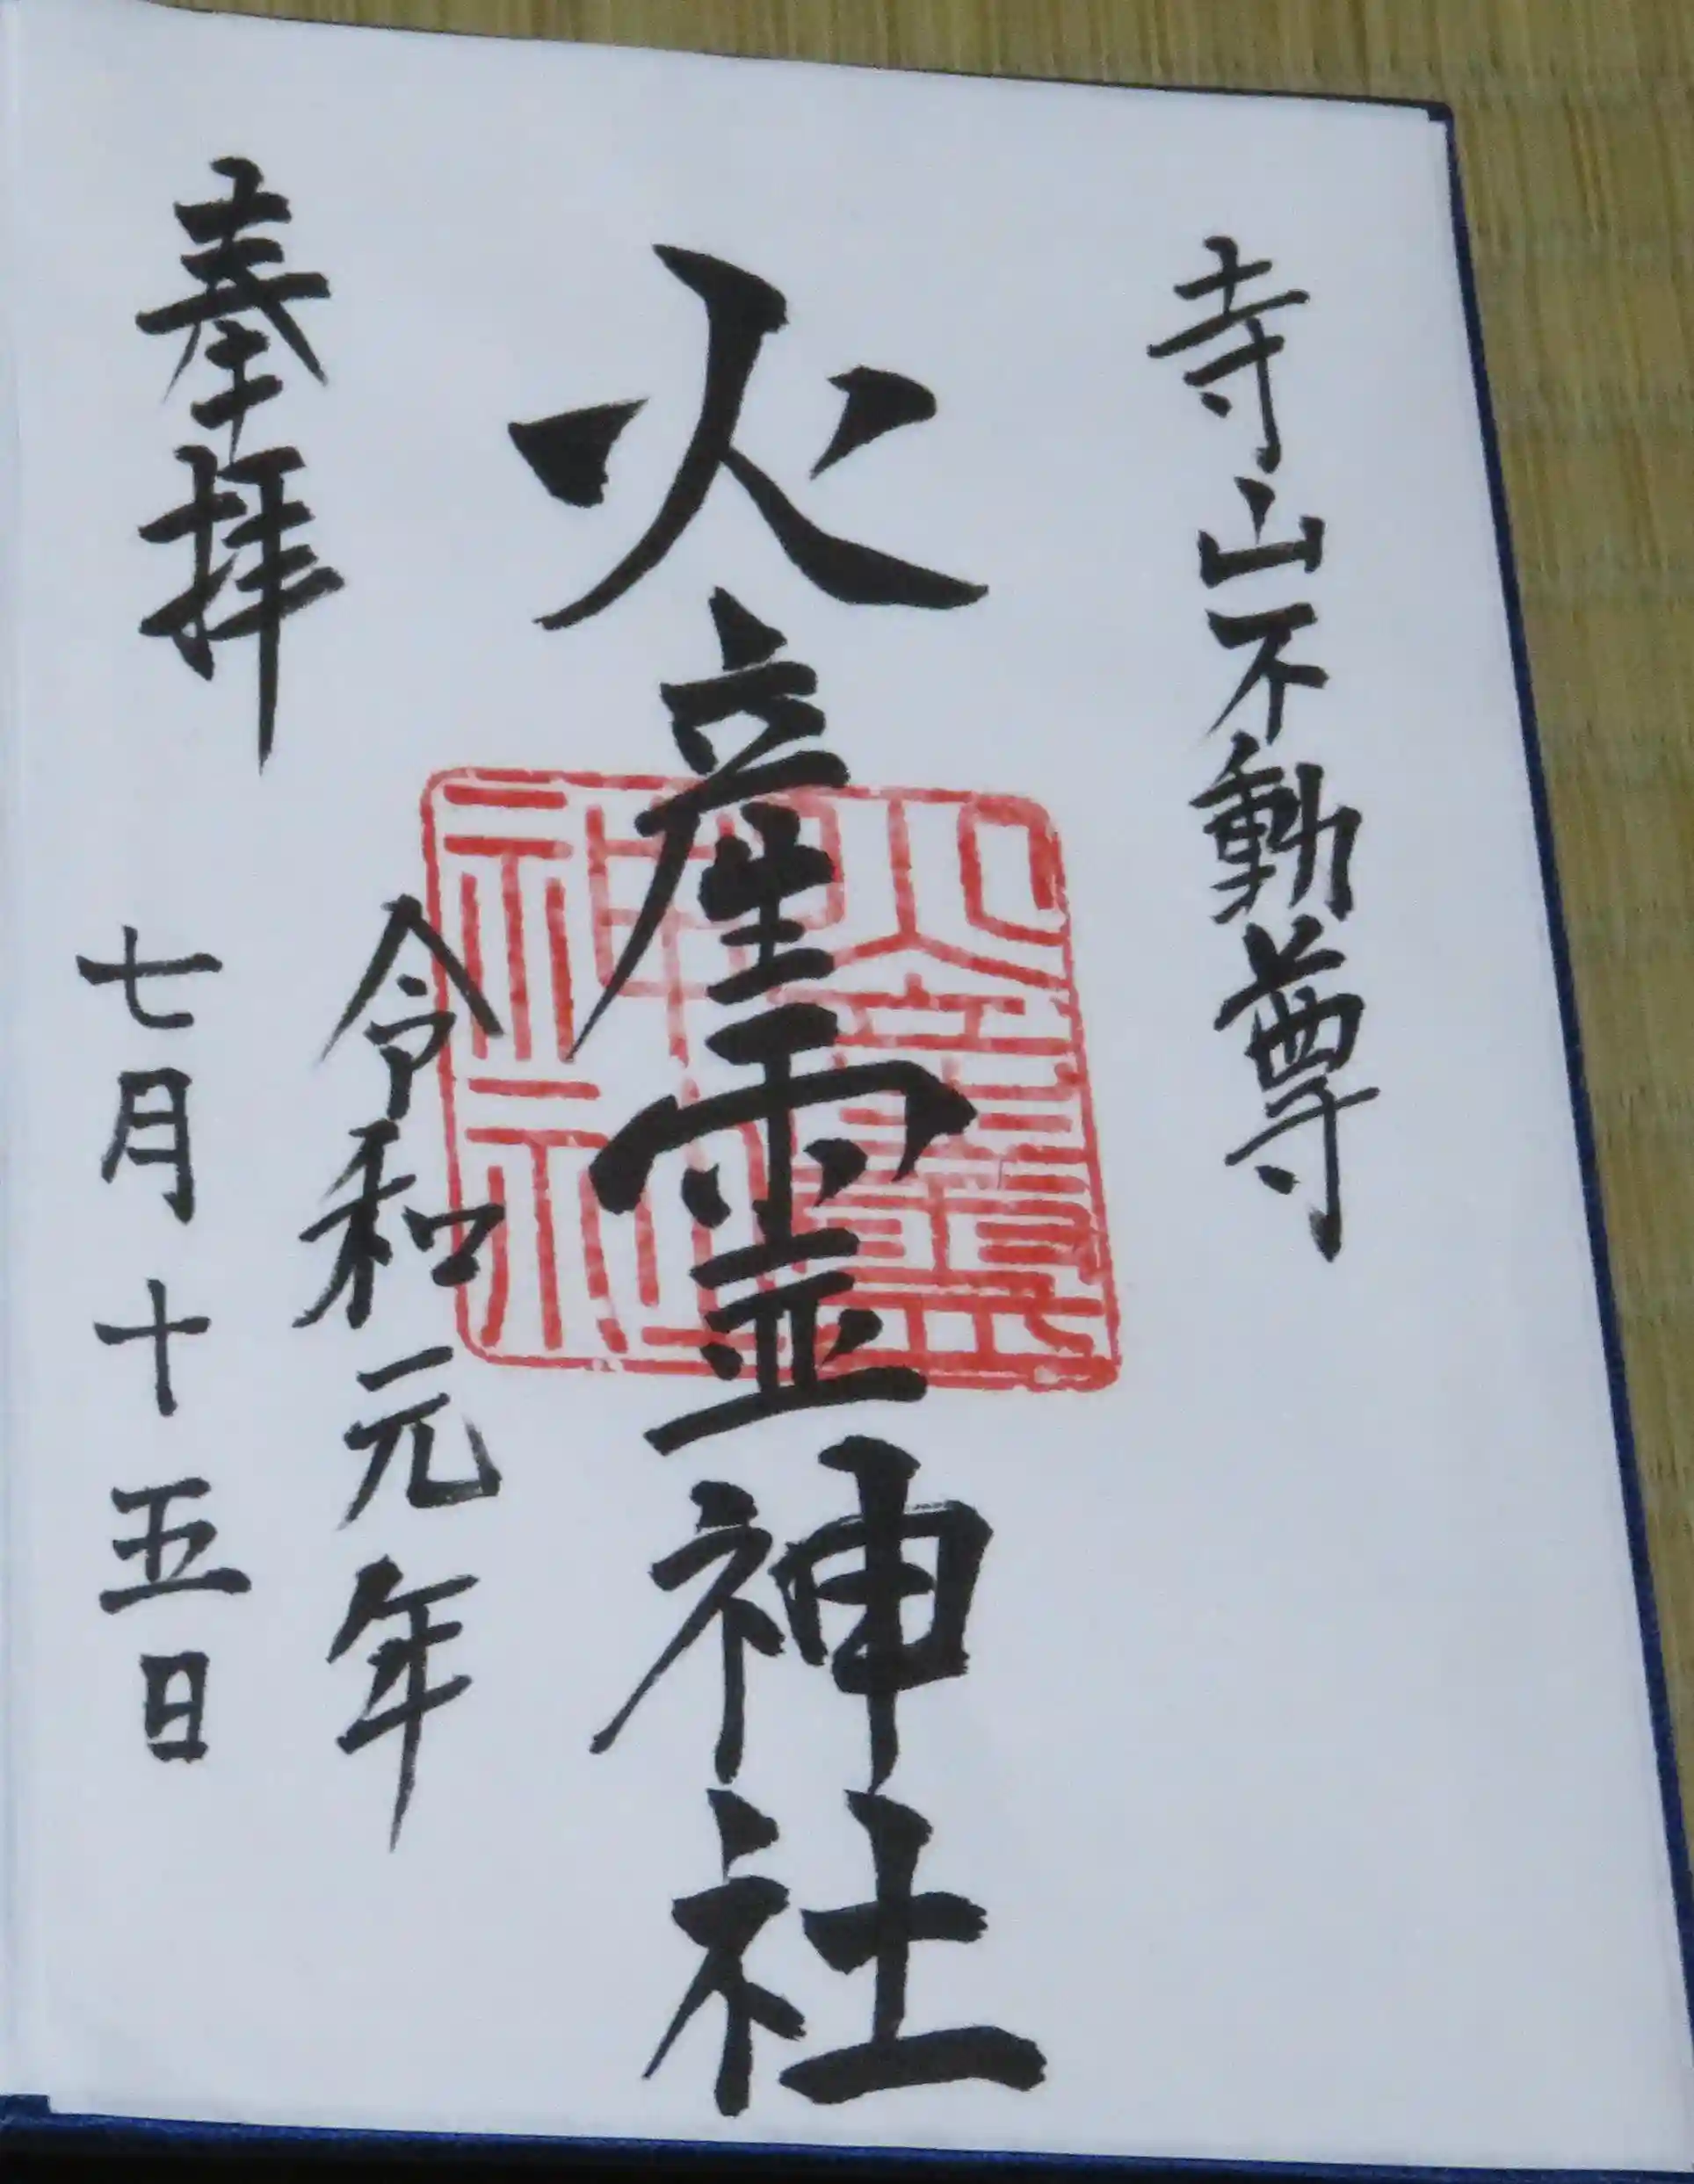 寺山不動尊
火産霊神社
奉拝
令和元年
七月十五日